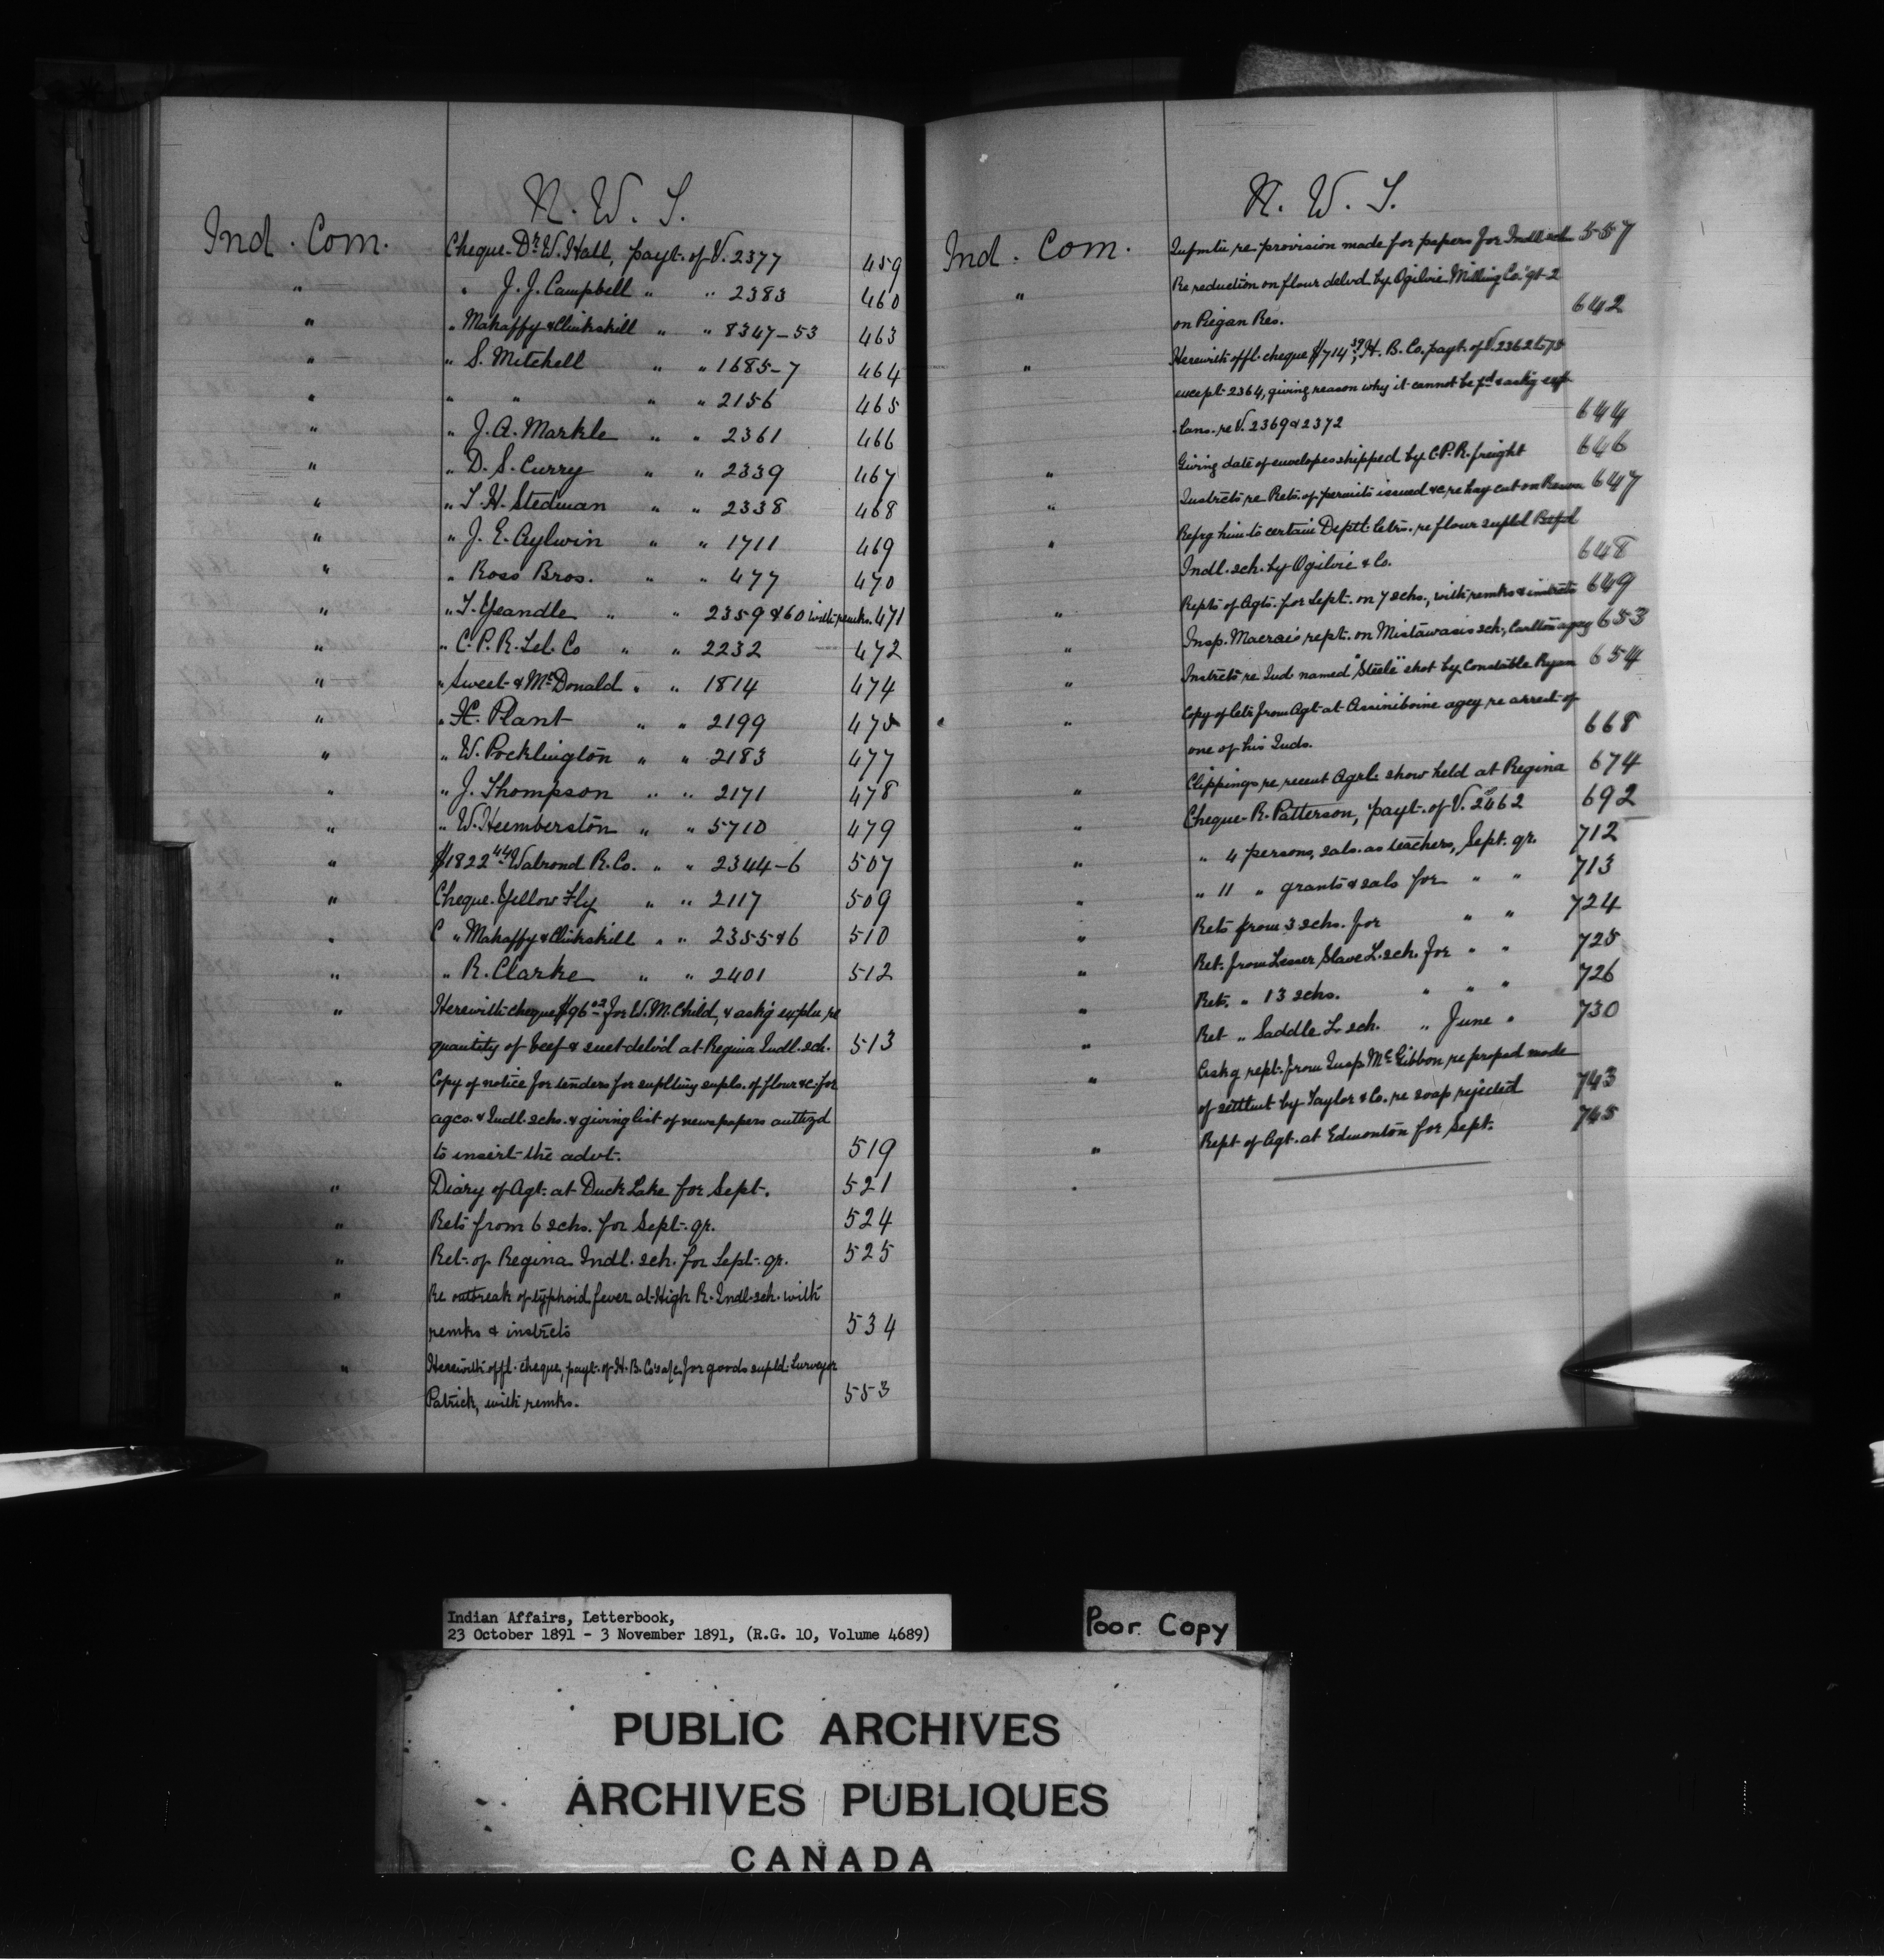 N. W. T.
Ind. Com. Cheque Dr. W. Hall, payt. of V. 2377 459
" " J. J. Campbell " " 2383 460
" " Mahaffy & Clinkskill " " 8347-53 463
" " S. Mitchell " " 1685-7 464
" " " " " 2156 465
" " J. A. Markle " " 2361 466
" " D. S. Curry " " 2339 467
" " T. H. Stedman " " 2338 468
" " J. E. Aylwin " " 1711 469
" " Ross Bros. " " 477 470
" " T. Yeandle " " 2359 & 60 with remks. 471
" " C. P. R. Tel. Co " " 2232 472
" " Sweet & McDonald " " 1814 474
" " H. Plant " " 2199 475
" " W. Pocklington " " 2183 477
" " J. Thompson " " 2171 478
" " W. Humberston " " 5710 479
" $1822.44 Walrond R. Co. " " 2344-6 507
" Cheque Yellow Fly " " 2117 509
" C " Mahaffy & Clinkskill " " 2355 & 6 510
" " R. Clarke " " 2401 512
" Herewith cheque $96.02 for W. M. Child, & askg explu re
quantity of beef & suet delvd at Regina Indl. sch. 513
" Copy of notice for tenders for suplting supls. of flour &c. for
agcs. & Indl. schs. & giving list of newspapers authzd
to insert the advt. 519
" Diary of Agt. at Duck Lake for Sept. 521
" Rets from 6 schs. for Sept. qr. 524
" Ret. of Regina Indl. sch. for Sept. qr. 525
" Re outbreak of typhoid fever at High R. Indl. sch. with
remks & instrcts 534
" Herewith offl. cheque, payt. of H. B. Co's a/c. for goods supld. Surveyor
Patrick, with remks. 553
N. W. T.
Ind. Com. Infmtn re provision made for papers for Indl sch 557
" Re reduction on flour delvd by Ogilvie Milling Co. gt. 2
on Piegan Res. 642
" Herewith offl. cheque $714.39, H. B. Co. payt. of V. 2362 to 75
except 2364, giving reason why it cannot be pd & askg exp-
lans. re V. 2369 & 2372 644
" Giving date of envelopes shipped by C. P. R. freight 646
" Instrcts re Rets. of permits issued &c re hay cut on Reserve 647
" Refrg him to certain Deptl. letrs. re flour supld Batfd
Indl. sch. by Ogilvie & Co. 648
" Repts of Agts. for Sept. on 7 schs., with remks & instrcts 649
" Insp. Macrae's rept. on Mistawasis sch., Carlton agcy 653
" Instrcts re Ind named "Steele" shot by Constable Ryan 654
" Copy of letr from Agt. at Assiniboine agcy re arrest of
one of his Inds. 668
" Clippings re recent Agrl. show held at Regina 674
" Cheque R. Patterson, payt. of V. 2462 692
" " 4 persons, sals. as teachers, Sept. qr. 712
" " 11 " grants & sals for " " 713
" Rets from 3 schs. for " " 724
" Ret. from Lesser Slave L. sch. for " " 725
" Ret. " 13 schs. " " " 726
" Ret " Saddle L. sch. " June " 730
" Askg rept. from Insp. McGibbon re propsd mode
of settlmt by Taylor & Co. re soap rejected 743
" Rept of Agt. at Edmonton for Sept. 745
Indian Affairs, Letterbook,
23 October 1891 - 3 November 1891, (R.G. 10, Volume 4689)
Poor Copy
PUBLIC ARCHIVES
ARCHIVES PUBLIQUES
CANADA